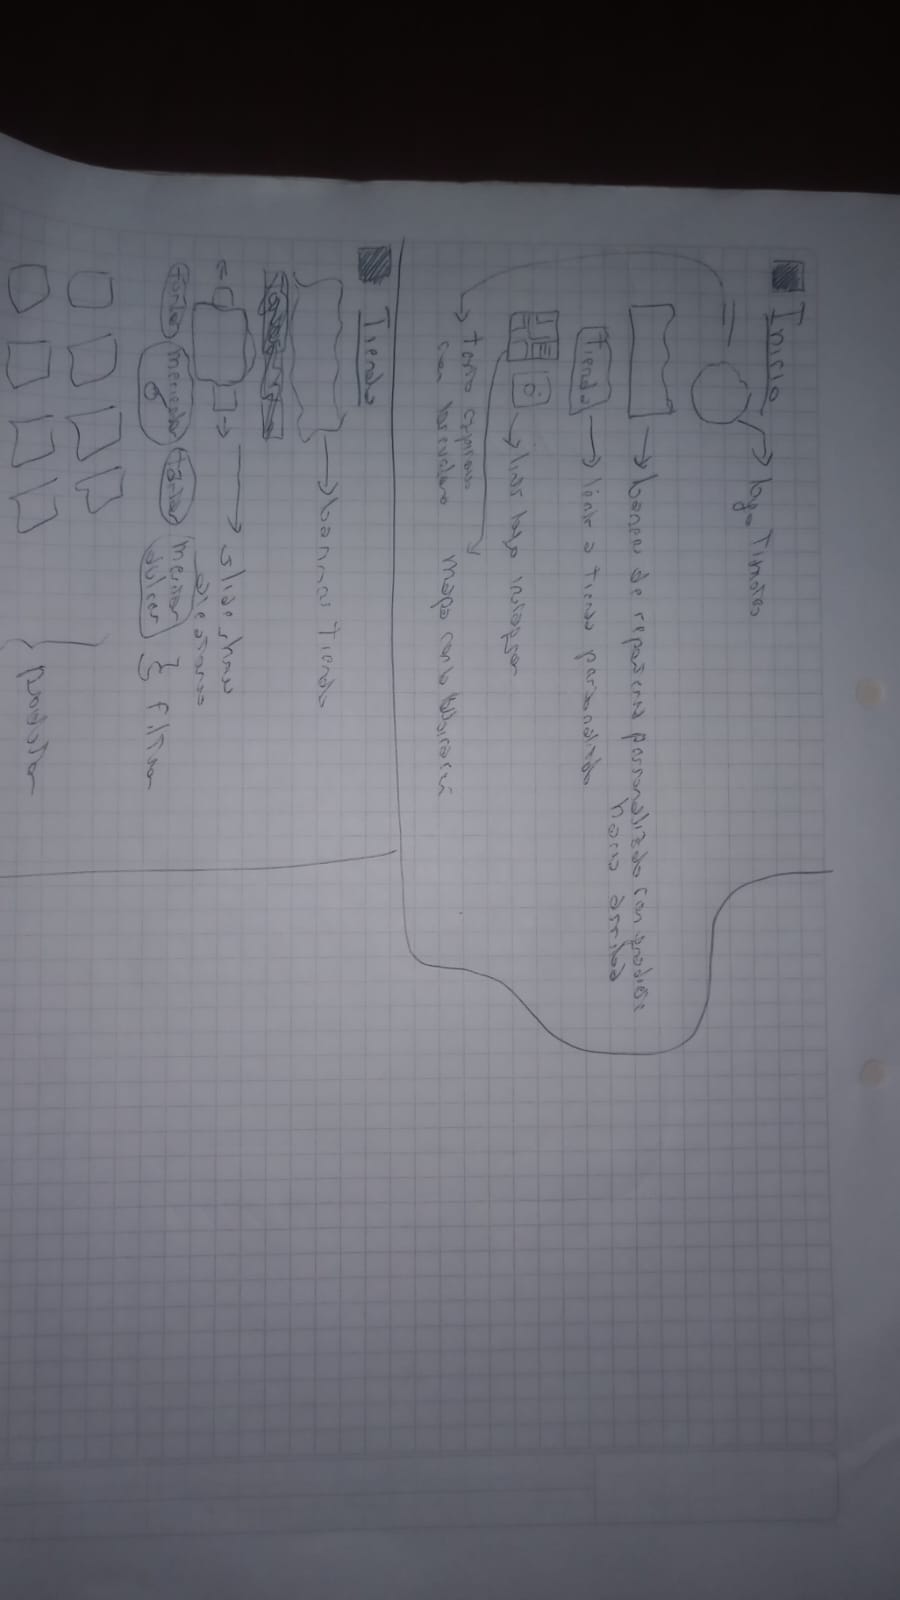 Inicio
logo Timoteo
banner de reposteria personalizado con gradiente
hacia arriba
Tienda
link a tienda personalizado
link logo instagram
texto
con
mapa con la ubicación
Tienda
banner tienda
slide show
aleatorio
tortas
meriendas
tartas
mesas
dulces
filtros
productos